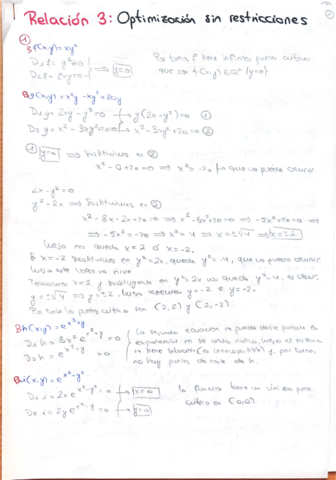 Relación 3: Optimización sin restricciones
①
f(x,y)=xy²
D₁f= y²=0
D₂f= 2xy=0 ⟹ y=0
Por tanto f tiene infinitos puntos críticos
que son {(x,y)∈ℝ²/y=0}
g(x,y)=x²y-xy³+20y
D₁g=2xy-y³=0 → y(2x-y²)=0 ①
D₂g=x²-3xy²+20=0 → x²-3xy²+20=0 ②
① y=0 ⟹ Sustituimos en ②
x²-0+20=0 ⟹ x²=-20
2x-y²=0
y²=2x ⟹ Sustituimos en ②
x²-3x·2x+20=0 ⟹ x²-6x²+20=0 ⟹ -5x²+20=0 ⟹
⟹ -5x²=-20 ⟹ x²=4 ⟹ x=±√4 ⟹ x=±2
Luego nos queda x=2 ó x=-2.
Si x=-2 sustituimos en y²=2x, queda y²=-4, que no puede ocurrir
luego este valor no sirve
Tomamos x=2 y sustituyendo en y²=2x nos queda y²=4, es decir,
y=±√4 ⟹ y=±2, luego tenemos y=-2 e y=2.
Por tanto los puntos críticos son (2,2) y (2,-2).
h(x,y)=e^(x³-y)
D₁h=3x²e^(x³-y)=0
D₂h=-e^(x³-y)=0
La segunda ecuación no puede darse porque la
exponencial no se anula nunca, luego el sistema
no tiene solución y, por tanto,
no hay puntos críticos de h.
i(x,y)=e^(x²-y²)
D₁i=2xe^(x²-y²)=0 → x=0
D₂i=-2ye^(x²-y²)=0 → y=0
La función tiene un único punto
crítico en (0,0)